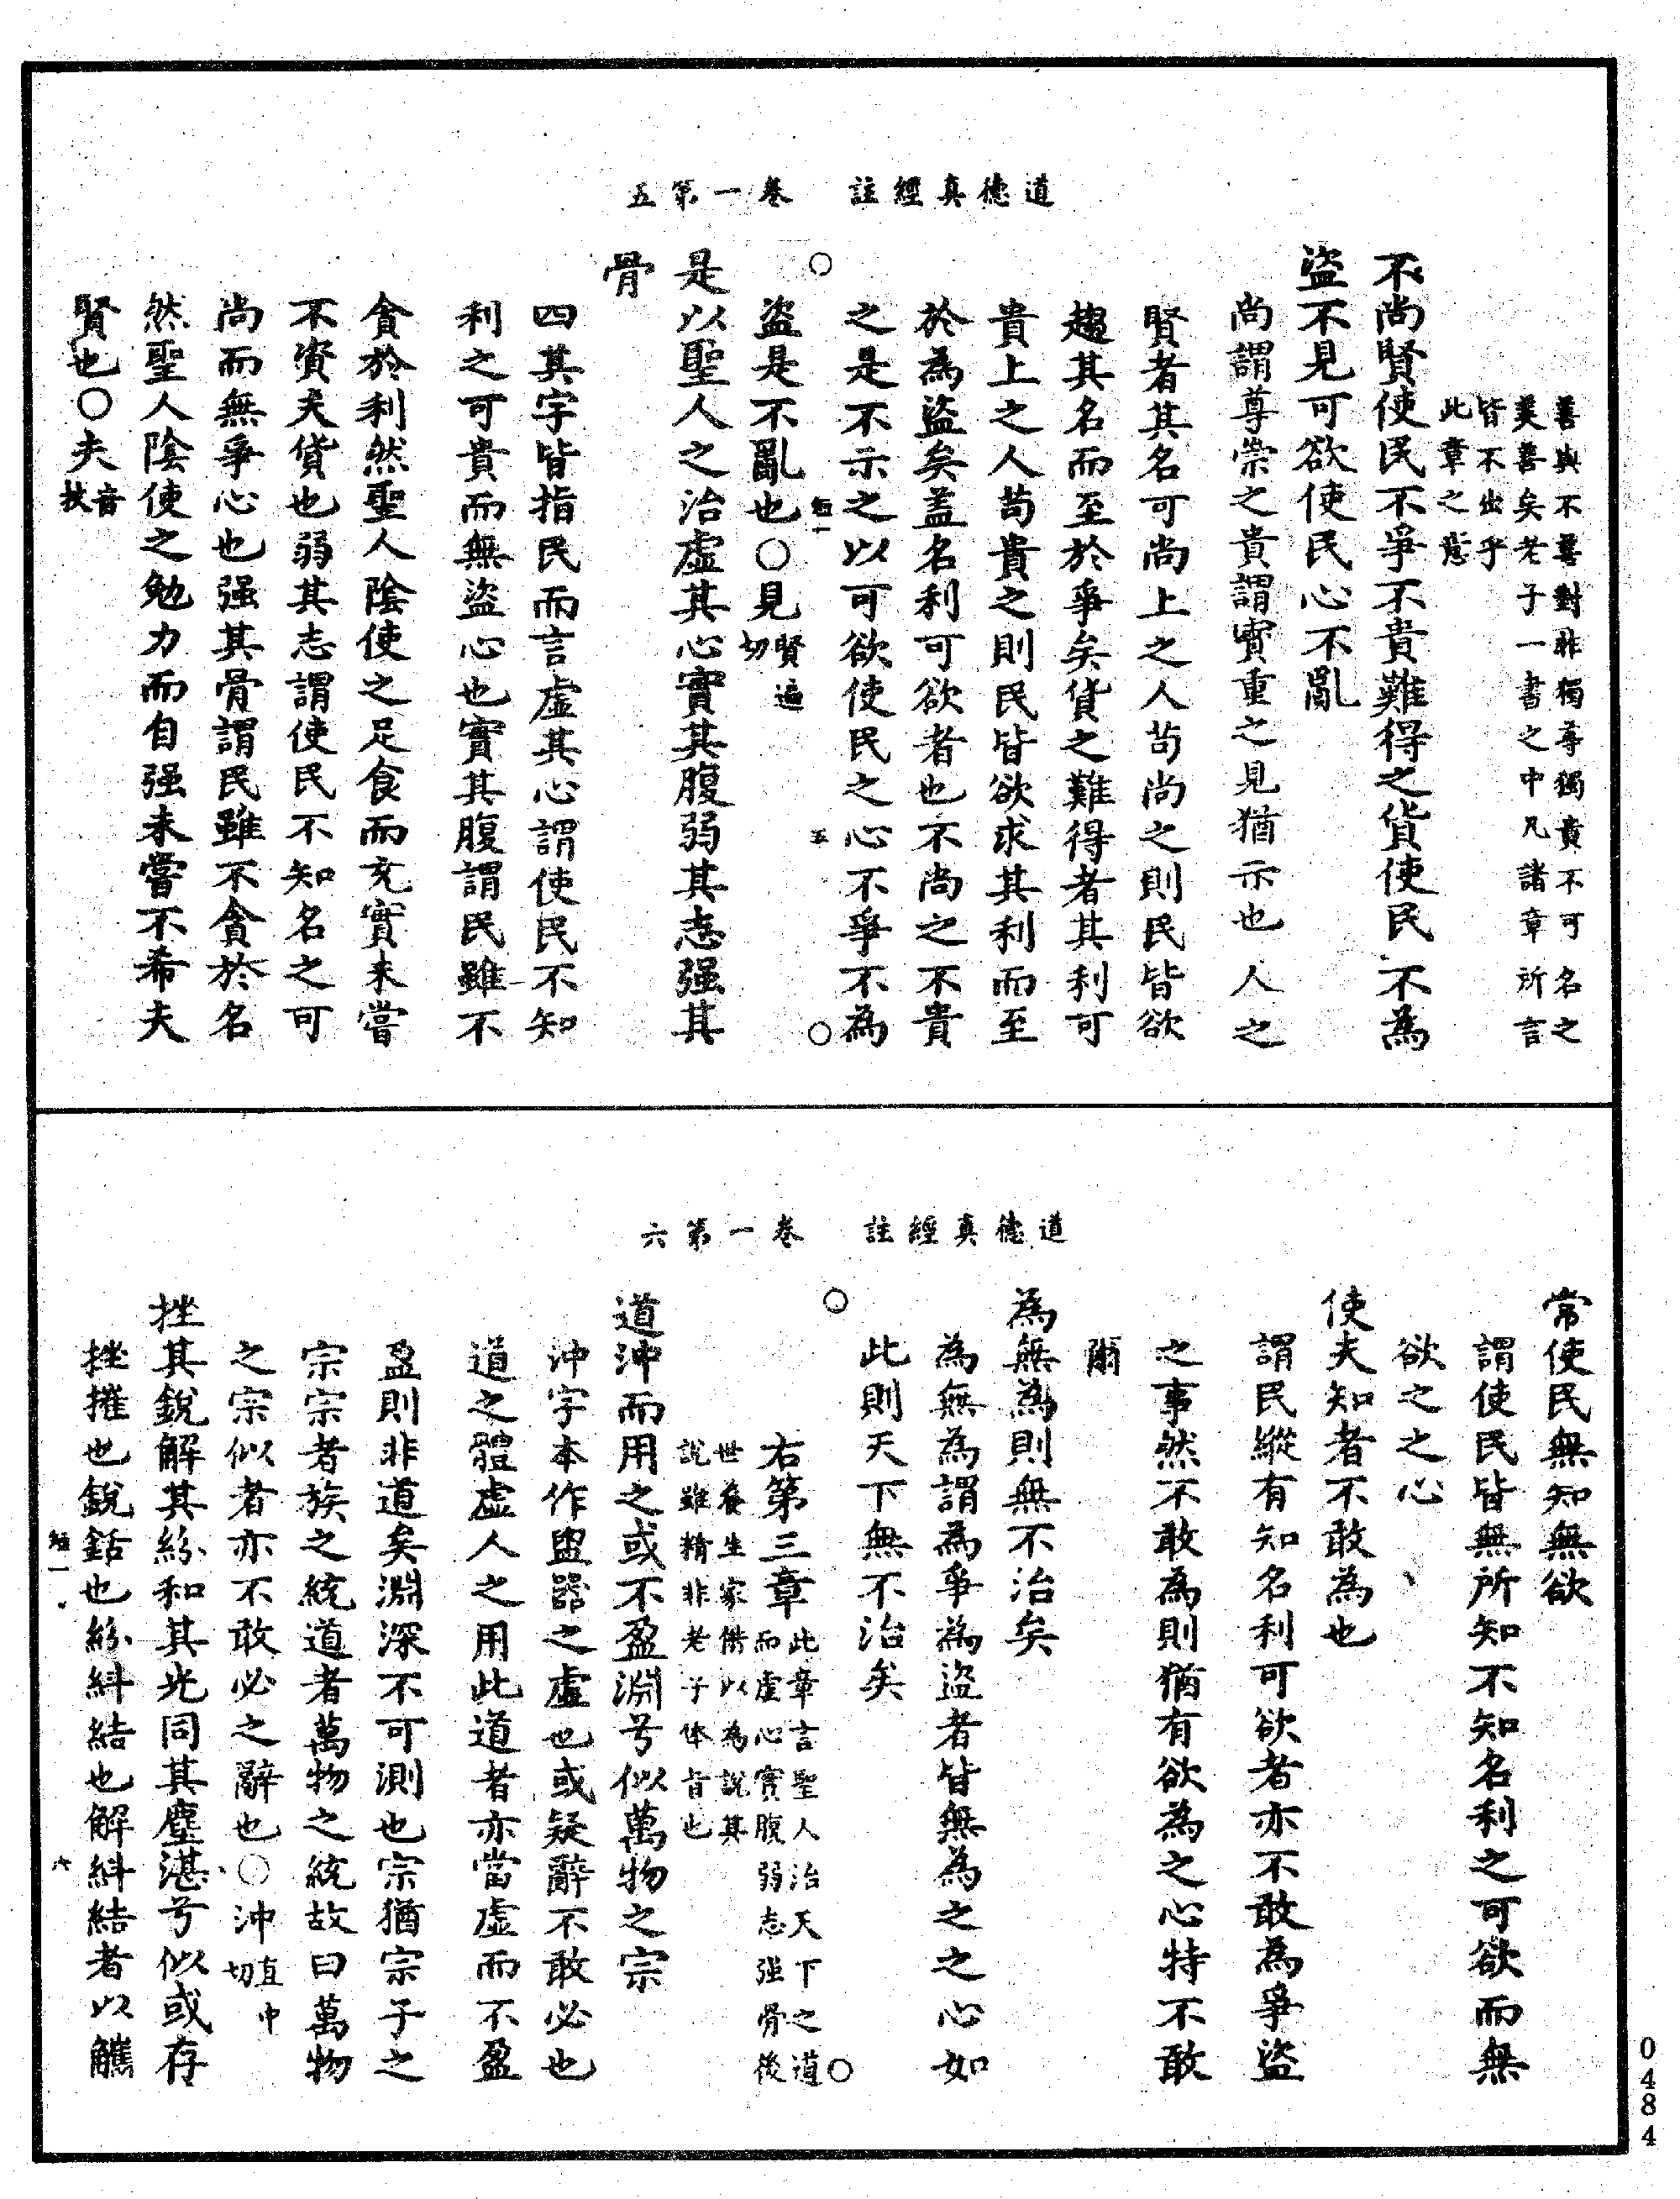 道德真經註　卷一第五
善與不善對非獨尊獨貴不可名之
美善矣老子一書之中凡諸章所言
皆不出乎
此章之意
不尚賢使民不爭不貴難得之貨使民不為
盜不見可欲使民心不亂
尚謂尊崇之貴謂寶重之見猶示也人之
賢者其名可尚上之人苟尚之則民皆欲
趨其名而至於爭矣貨之難得者其利可
貴上之人苟貴之則民皆欲求其利而至
於為盜矣蓋名利可欲者也不尚之不貴
之是不示之以可欲使民之心不爭不為
短一　五
盜是不亂也○見賢遍切
是以聖人之治虛其心實其腹弱其志强其
骨
四其字皆指民而言虛其心謂使民不知
利之可貴而無盜心也實其腹謂民雖不
貪於利然聖人陰使之足食而充實未嘗
不資夫貨也弱其志謂使民不知名之可
尚而無爭心也强其骨謂民雖不貪於名
然聖人陰使之勉力而自强未嘗不希夫
賢也○夫音扶
道德真經註　卷一第六
常使民無知無欲
謂使民皆無所知不知名利之可欲而無
欲之之心
使夫知者不敢為也
謂民縱有知名利可欲者亦不敢為爭盜
之事然不敢為則猶有欲為之心特不敢
爾
為無為則無不治矣
為無為謂為爭為盜者皆無為之之心如
此則天下無不治矣
右第三章
此章言聖人治天下之道
而虛心實腹弱志强骨後
世養生家借以為說其
說雖精非老子体旨也
道沖而用之或不盈淵兮似萬物之宗
沖字本作盅器之虛也或疑辭不敢必也
道之體虛人之用此道者亦當虛而不盈
盈則非道矣淵深不可測也宗猶宗子之
宗宗者族之統道者萬物之統故曰萬物
之宗似者亦不敢必之辭也○沖直中切
挫其銳解其紛和其光同其塵湛兮似或存
挫摧也銳銛也紛糾結也解糾結者以觿
短一　六
0484